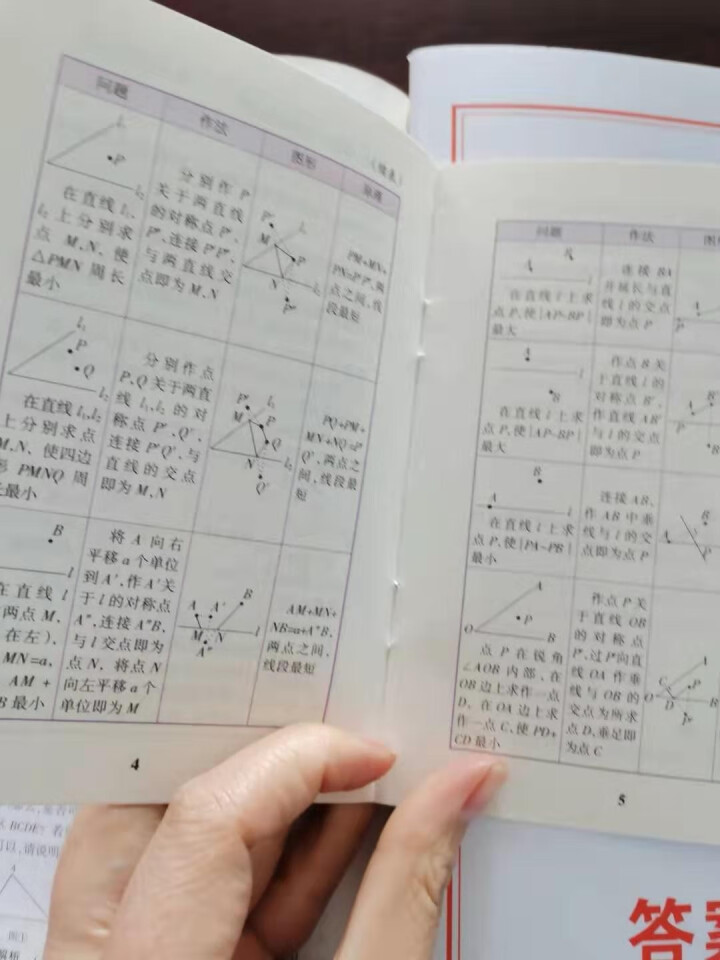 (续表)
问题 作法 图形 原理
l₁
P
l₂
在直线 l₁、
l₂ 上分别求
点 M、N，使
△PMN 周长
最小
分别作 P
关于两直线
的对称点 P′、
P″，连接 P′P″，
与两直线交
点即为 M、N
P′
M
P
N
l₂
P″
PM+MN+
PN=P′P″，两
点之间，线
段最短
l₁
P
Q
l₂
在直线 l₁、l₂
上分别求点
M、N，使四边
形 PMNQ 周
长最小
分别作点
P、Q 关于两直
线 l₁、l₂ 的对
称点 P′、Q′，
连接 P′Q′，与
直线的交点
即为 M、N
P′
l₁
M
P
Q
N
l₂
Q′
PQ+PM+
MN+NQ=P′
Q′，两点之
间，线段最
短
B
l
在直线 l
两点 M、
在左），
MN=a，
AM+
B 最小
将 A 向右
平移 a 个单位
到 A′，作 A′关
于 l 的对称点
A″，连接 A″B，
与 l 交点即为
点 N，将点 N
向左平移 a 个
单位即为 M
A A′ B
M N l
A″
AM+MN+
NB=a+A″B，
两点之间，
线段最短
4
问题 作法
A
l
在直线 l 上求
点 P，使|AP-BP|
最大
连接 BA
并延长与直
线 l 的交点
即为点 P
A
P
A
l
B
在直线 l 上求
点 P，使|AP-BP|
最大
作点 B 关
于直线 l 的
对称点 B′，
作直线 AB′
与 l 的交点
即为点 P
A
B′
P
B
B
A
l
在直线 l 上求
点 P，使|PA-PB|
最小
连接 AB，
作 AB 中垂
线与 l 的交
点即为点 P
B
A
P
A
P
O
B
点 P 在锐角
∠AOB 内部，在
OB 边上求作一点
D，在 OA 边上求
作一点 C，使 PD+
CD 最小
作点 P 关
于直线 OB
的对称点
P′，过 P′向直
线 OA 作垂
线与 OB 的
交点为所求
点 D，垂足即
为点 C
A
C
P
O D B
P′
5
BCDE？
可以，请说明
A
图①
答案